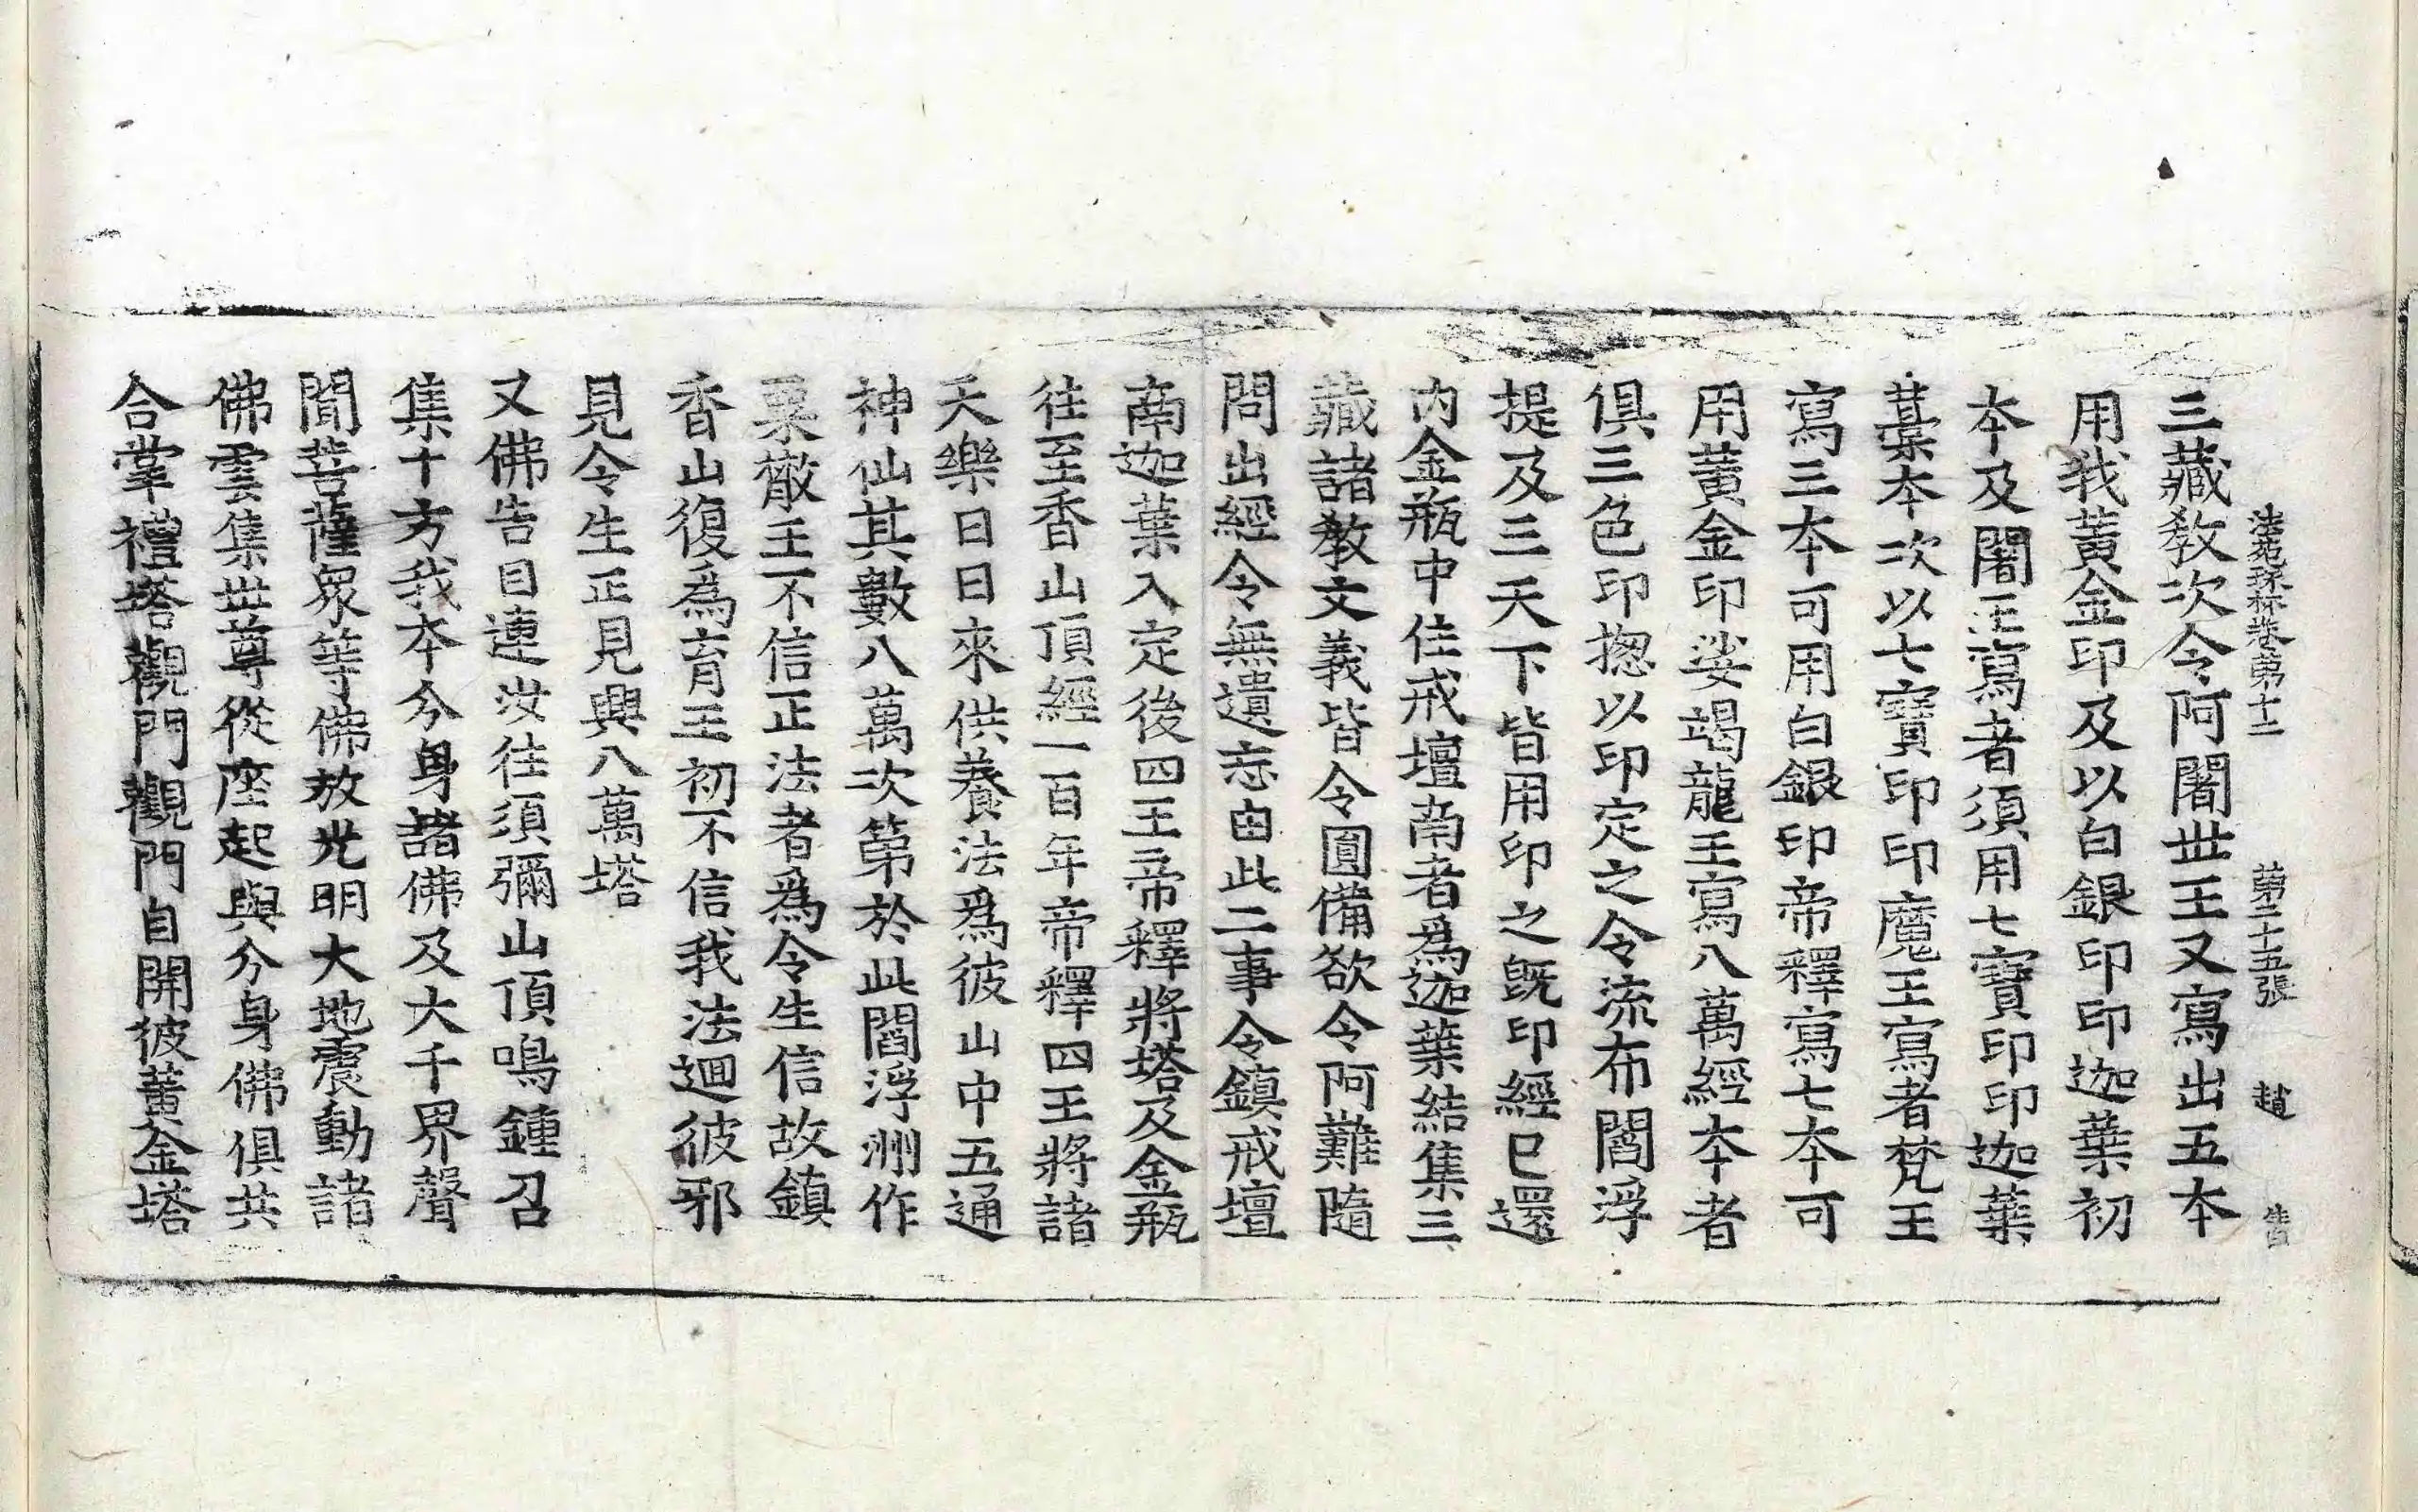 法苑珠林卷第十二 第二十五張 趙
三藏教次令阿闍世王又寫出五本
用我黃金印及以白銀印印迦葉初
本及闍王寫者須用七寶印印迦葉
葉本次以七寶印印魔王寫者梵王
寫三本可用白銀印帝釋寫七本可
用黃金印娑竭龍王寫八萬經本者
俱三色印揔以印定之令流布閻浮
提及三天下皆用印之旣印經已還
內金瓶中住戒壇南者爲迦葉結集三
藏諸教文義皆令圓備欲令阿難隨
問出經令無遺忘由此二事令鎮戒壇
南迦葉入定後四王帝釋將塔及金瓶
往至香山頂經一百年帝釋四王將諸
天樂日日來供養法爲彼山中五通
神仙其數八萬次第於此閻浮洲作
粟散王不信正法者爲令生信故鎮
香山復爲育王初不信我法迴彼邪
見令生正見興八萬塔
又佛告目連汝往須彌山頂鳴鍾召
集十方我本今身諸佛及大千界聲
聞菩薩衆等佛放光明大地震動諸
佛雲集世尊從座起與分身佛俱共
合掌禮塔觀門觀門自開彼黃金塔